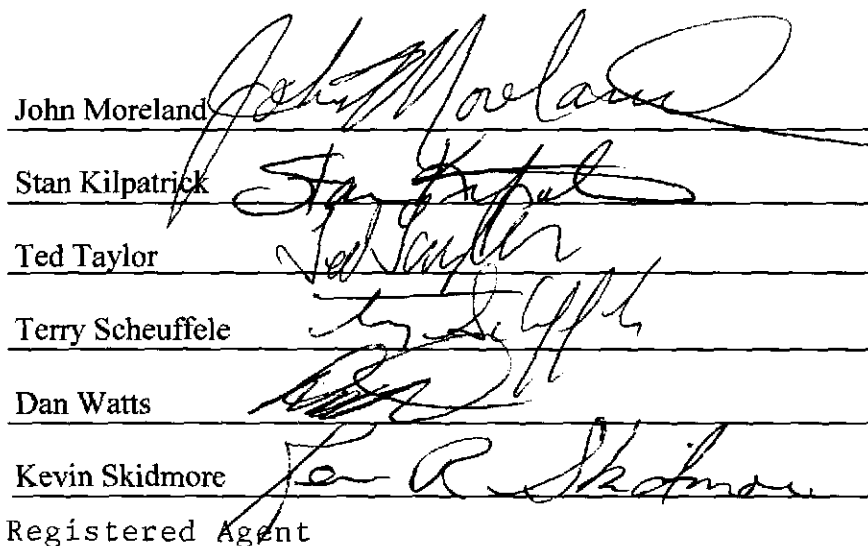 John Moreland John Moreland
Stan Kilpatrick Stan
Ted Taylor Ted Taylor
Terry Scheuffele
Dan Watts
Kevin Skidmore R. Skidmore
Registered Agent